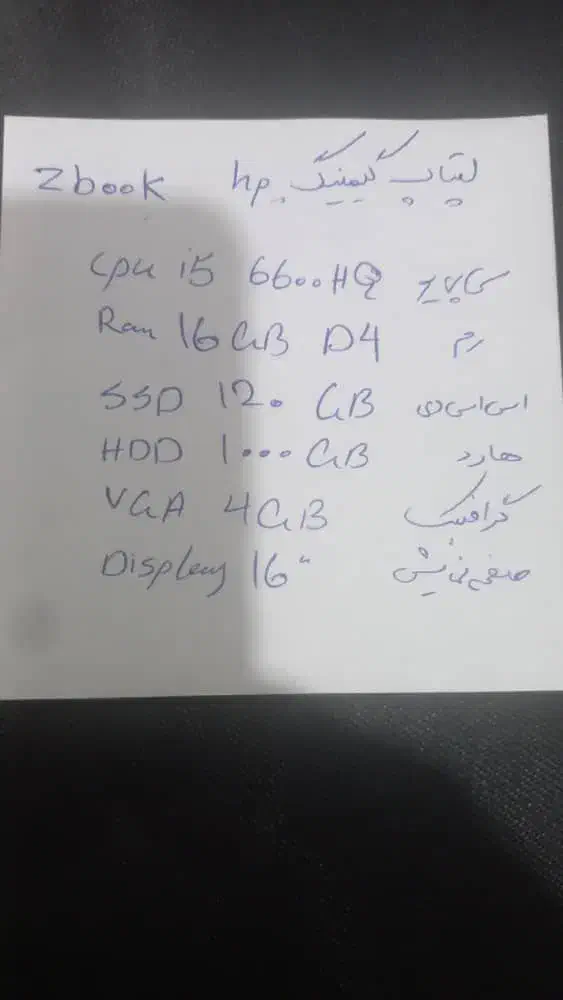 لپتاپ گیمینگ hp Zbook
Cpu i5 6600HQ سی پی یو
Ram 16GB D4 رم
SSD 120 GB اس اس دی
HDD 1000 GB هارد
VGA 4GB گرافیک
Display 16" صفحه نمایش